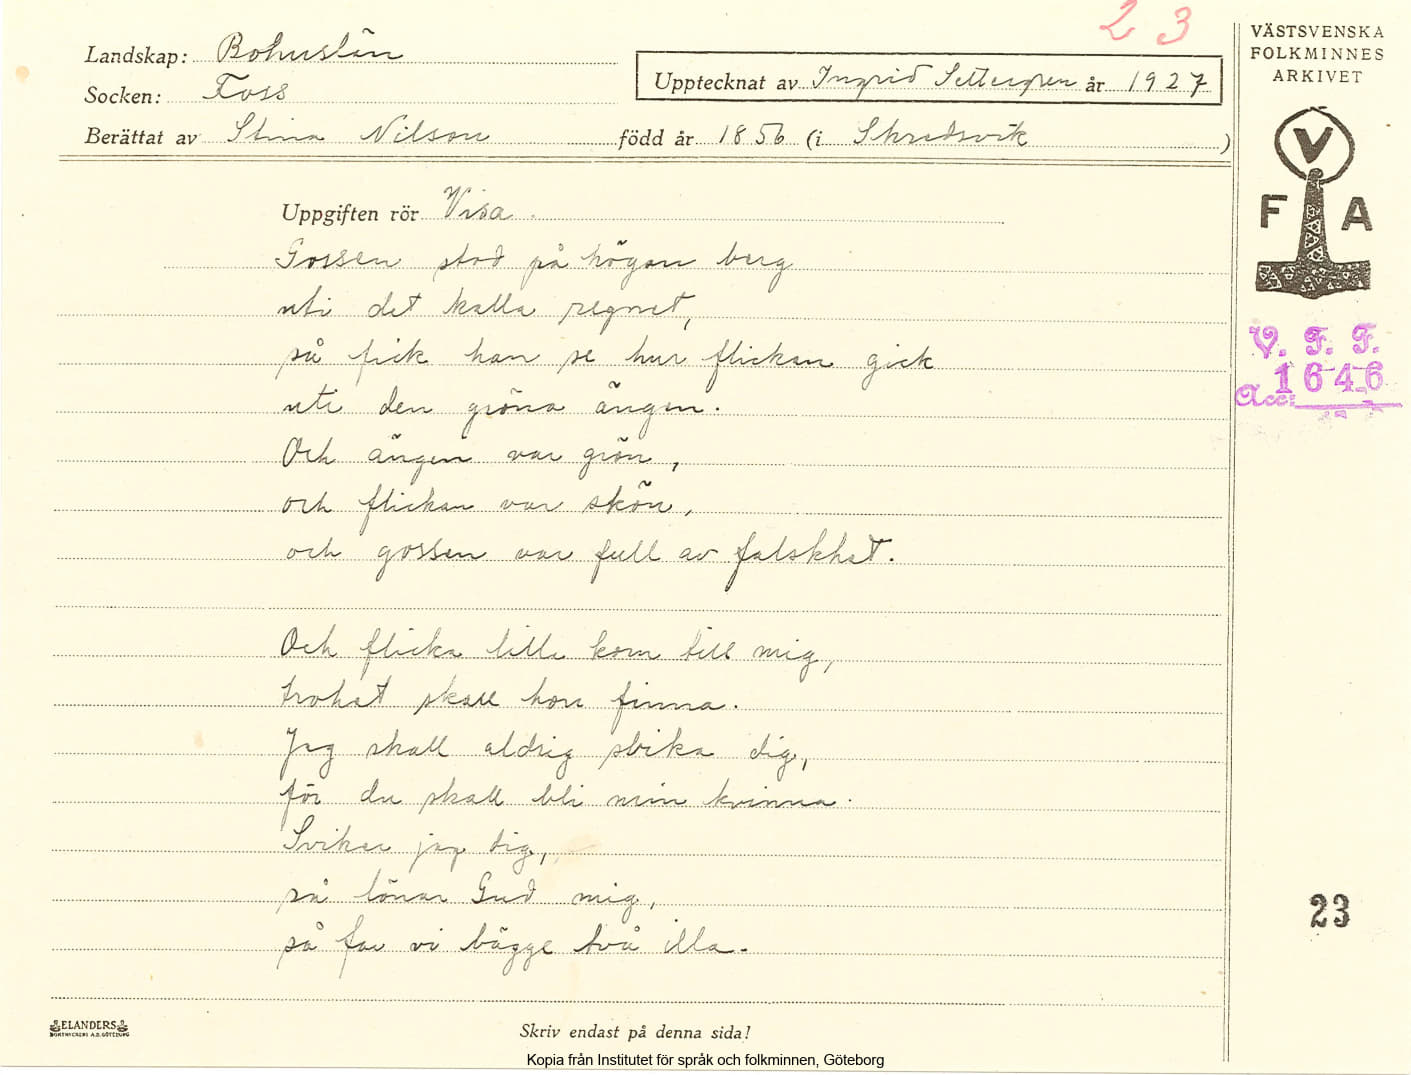 23
Landskap: Bohuslän
Socken: Foss
Upptecknat av Ingrid Settergren år 1927
Berättat av Stina Nilson född år 1856 (i Skredsvik )
VÄSTSVENSKA
FOLKMINNES
ARKIVET
V
F A
V. F. F.
Acc: 1646
Uppgiften rör Visa.
Gossen stod på högan berg
uti det kalla regnet,
så fick han se hur flickan gick
uti den gröna ängen.
Och ängen var grön,
och flickan var skön,
och gossen var full av falskhet.
Och flicka lilla kom till mig,
trohet skall hon finna.
Jag skall aldrig svika dig,
för du skall bli min kvinna.
Sviker jag dig,
så lönar Gud mig,
så far vi bägge två illa.
23
ELANDERS
BOKTRYCKERI A.B. GÖTEBORG
Skriv endast på denna sida!
Kopia från Institutet för språk och folkminnen, Göteborg